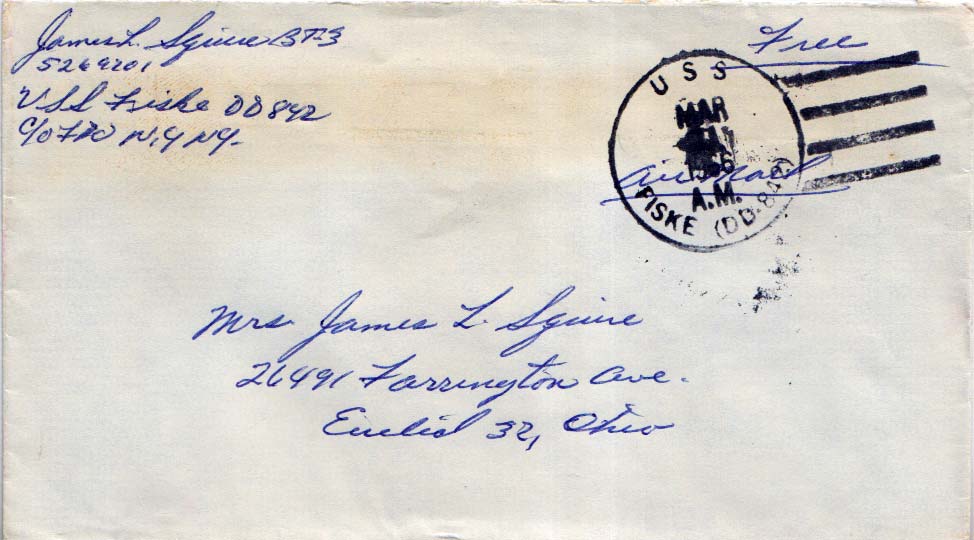 James L. Squire BT-3
5269201
USS Fiske DD 842
C/O FPO N.Y. N.Y.
Free
USS
MAR
1966
A.M.
FISKE (DD-842)
Air Mail
Mrs. James L. Squire
26491 Farrington Ave.
Euclid 32, Ohio